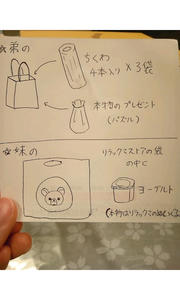 ☆弟の
ちくわ
4本入り × 3袋
本物のプレゼント
(パズル)
☆妹の
リラックマストアの袋
の中に
ヨーグルト
(本物はリラックマの